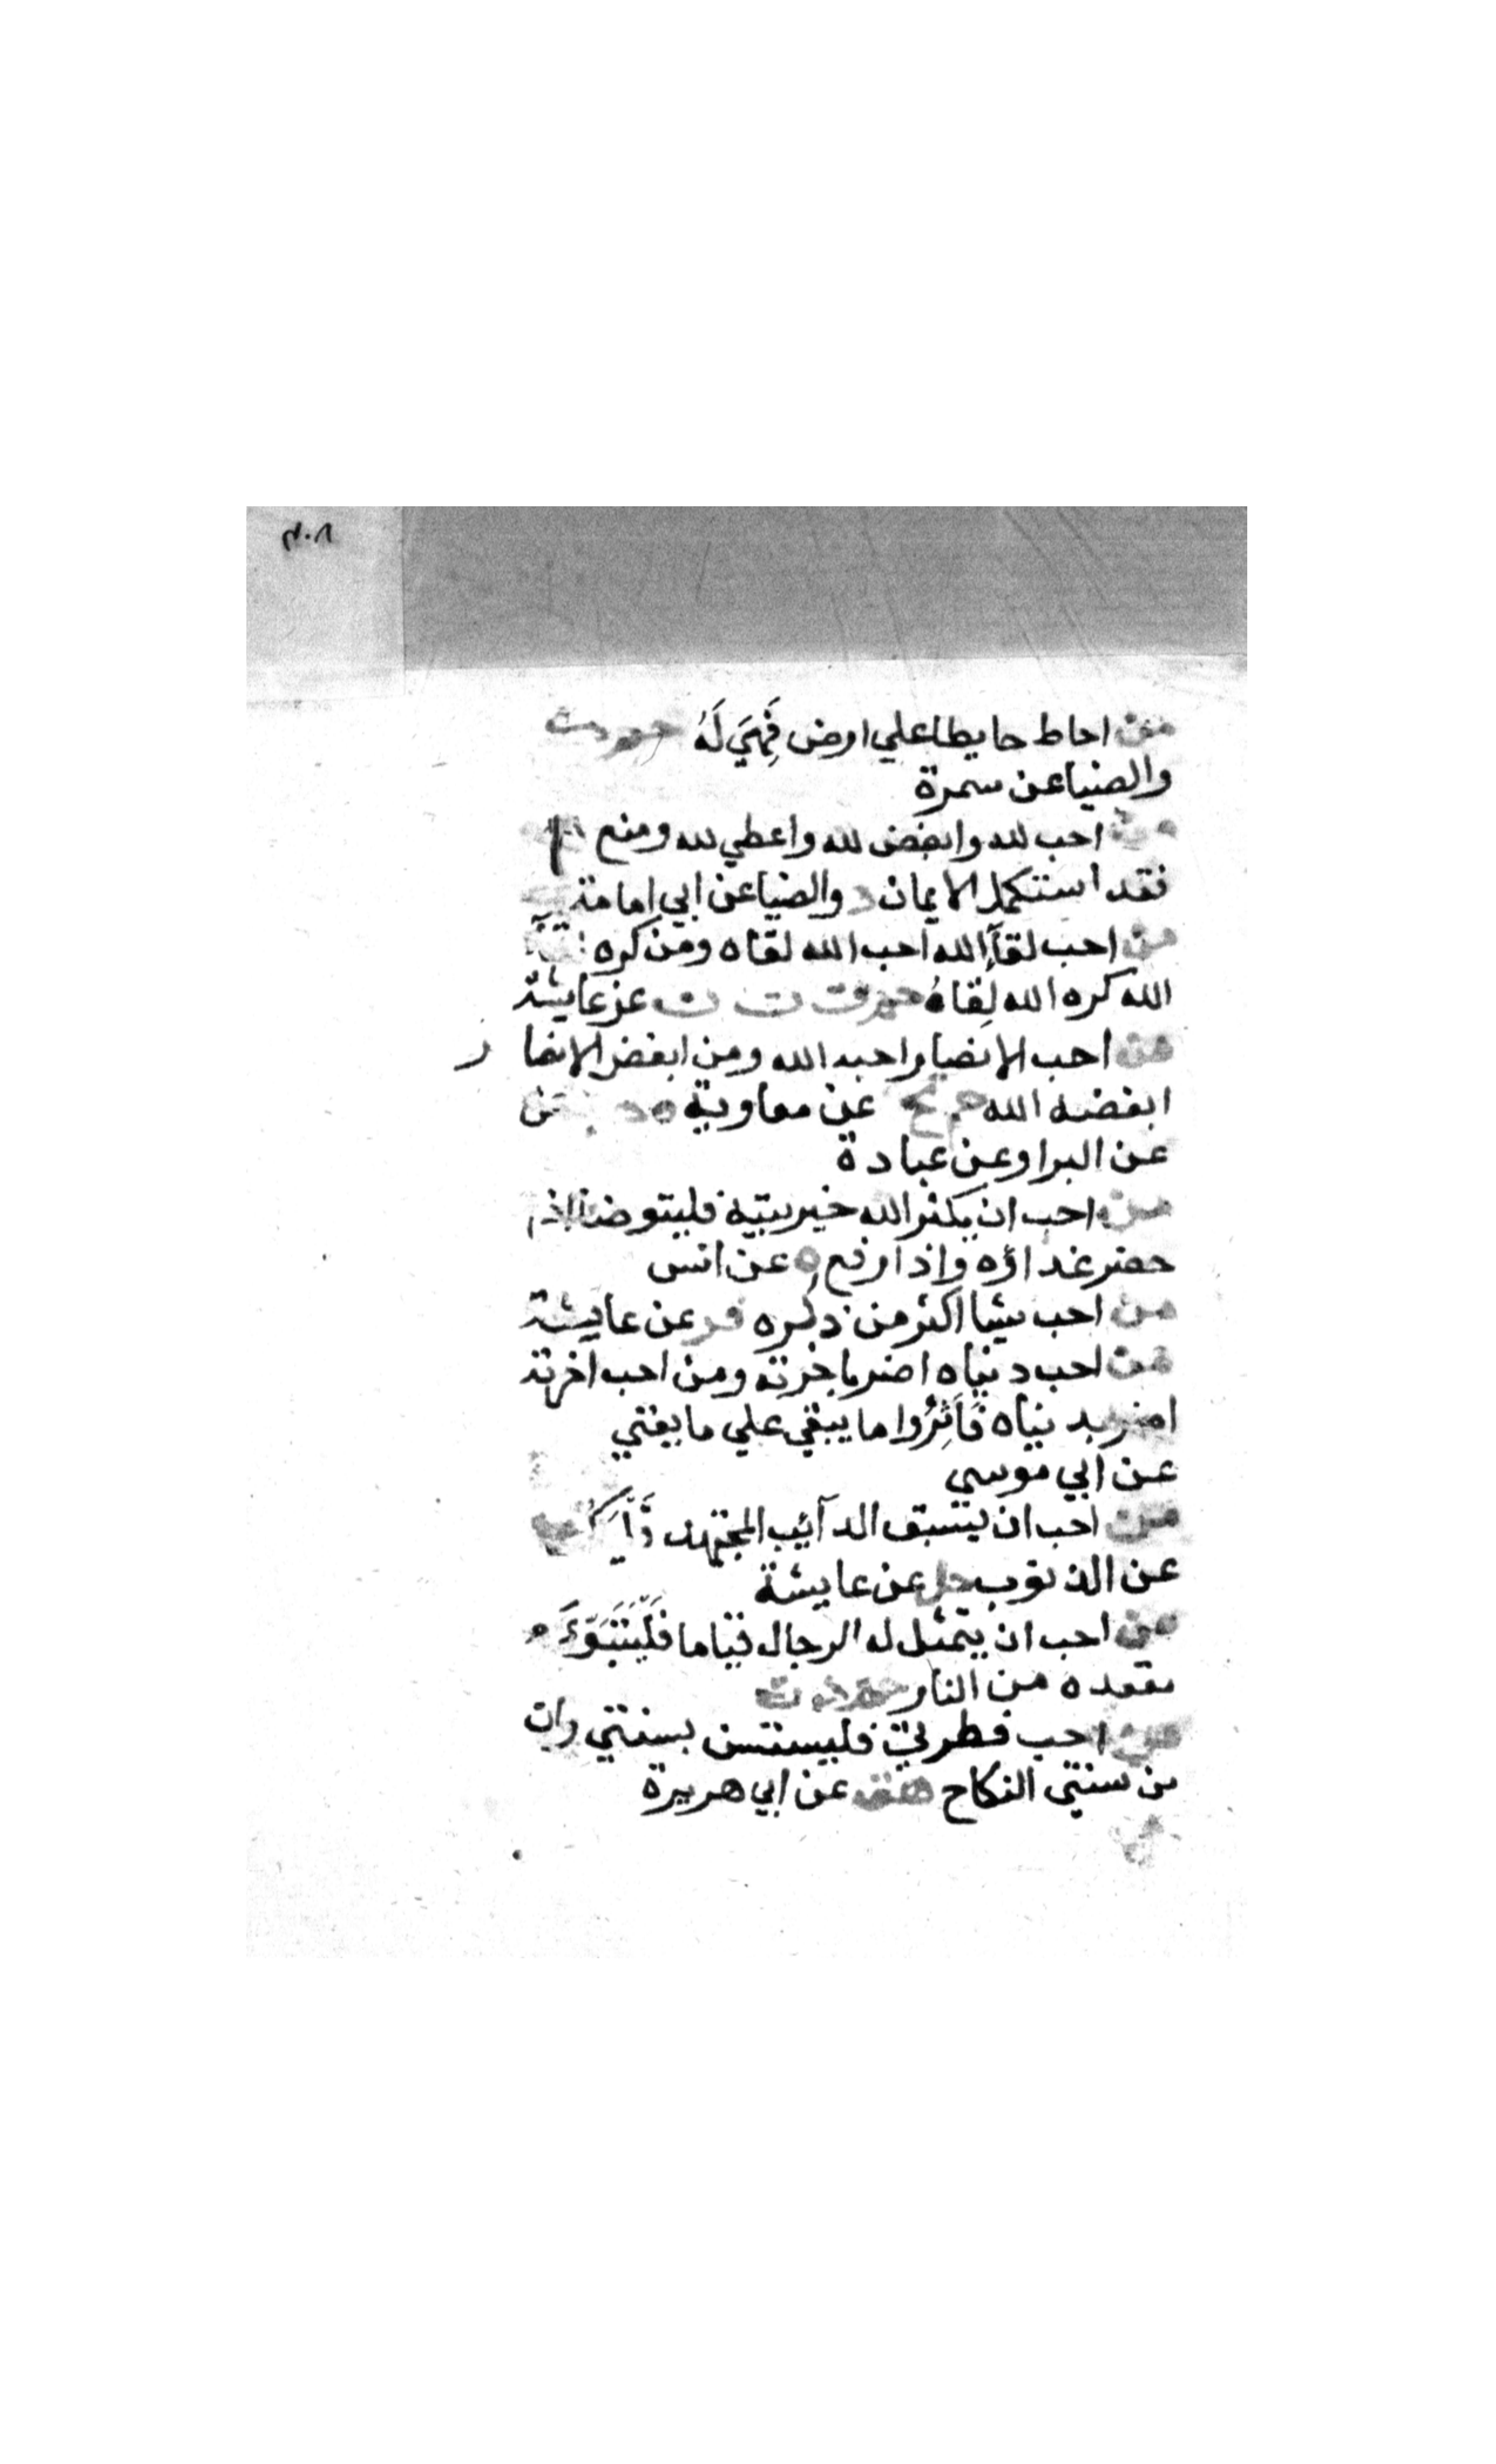 ٣٠٨
من احاط حايطا علي ارض فَهِيَ لَهُ حم د
والضياعن سمرة
من احب لله وابغض لله واعطي لله ومنع
فقد استكمل الايمان د والضياعن ابي امامة
من احب لقآءِ الله احب الله لقاه ومن كره
الله كره الله لِقاهُ حم ق ت ن عن عايشة
من احب الانصار احبه الله ومن ابغض الانصار
ابغضه الله حم تخ عن معاوية ه حب
عن البرا وعن عبادة
من احب ان يكثر الله خير بيته فليتوضا اذا
حضر غداؤه واذا رفع ه عن انس
من احب شيا اكثر من ذكره فر عن عايشة
من احب دنياه اضر باخرته ومن احب اخرته
اضر بدنياه فَآثِرُوا ما يبقي علي ما يفني
عن ابي موسي
من احب ان يسبق الدآئب المجتهد
عن الذنوب حل عن عايشة
من احب ان يتمثل له الرجال قياما فَلْيَتَبَوَّءْ
مقعده من النار حم د ت
من احب فطرتي فليستسن بسنتي وان
من سنتي النكاح هق عن ابي هريرة